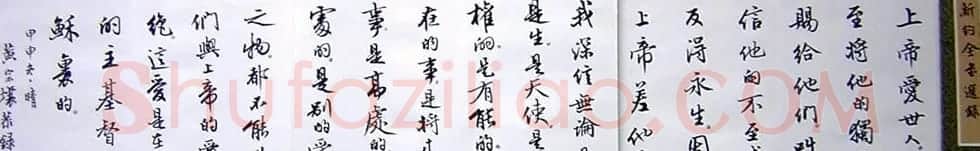 新約全書選錄
上帝愛世人
至將他的獨
賜給他們
信他的不至
反得永生因
上帝差他
我深信無論
是生是天使是
權的是有能的
在的事是將
事是高處的
處的是別的受
之物都不能
們與上帝的愛
絕這愛是在
的主基督
穌裏的。
甲申冬晴
黃實懐恭錄
Shufaziliao.com